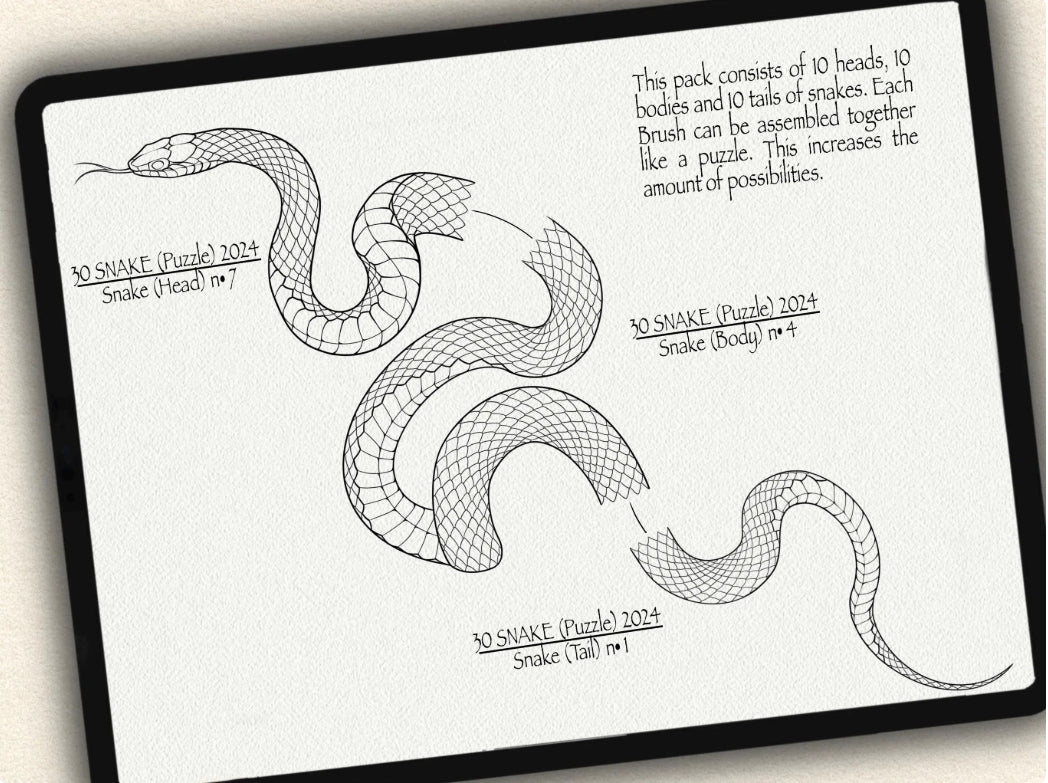 This pack consists of 10 heads, 10
bodies and 10 tails of snakes. Each
Brush can be assembled together
like a puzzle. This increases the
amount of possibilities.
30 SNAKE (Puzzle) 2024
Snake (Head) n•7
30 SNAKE (Puzzle) 2024
Snake (Body) n•4
30 SNAKE (Puzzle) 2024
Snake (Tail) n•1